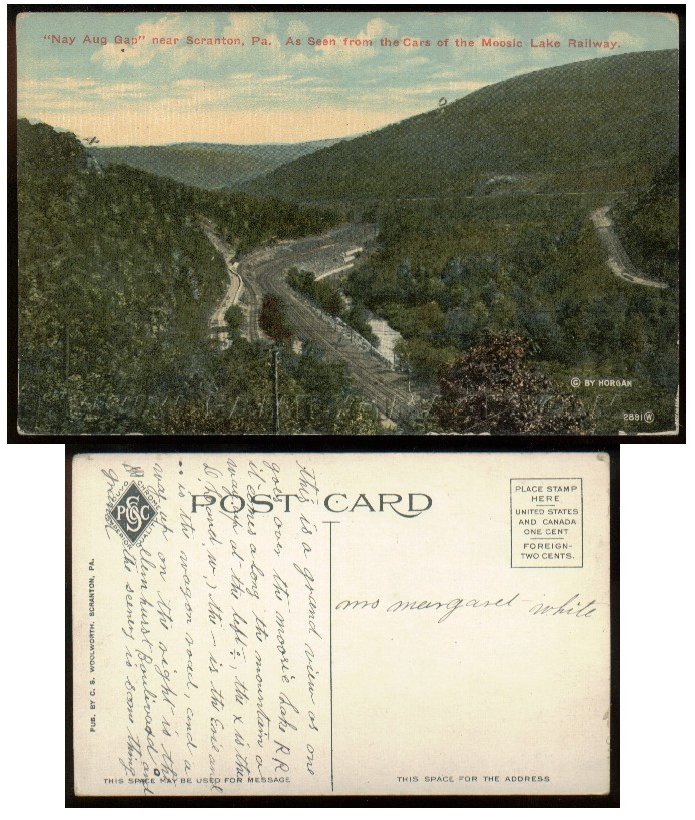 "Nay Aug Gap" near Scranton, Pa. As Seen from the Cars of the Moosic Lake Railway.
© BY HORGAN
2891 W
POST CARD
PLACE STAMP
HERE
UNITED STATES
AND CANADA
ONE CENT
FOREIGN-
TWO CENTS.
this is a grand view as one
goes over the moosic Lake RR
it comes along the mountain a
at the left the x is the
the - is the Erie and
is the wagon road, and a
way up on the right is the
Elemhurst Boulivard and
the scenery is some thing
grand
PSCC
mrs margaret white
PUB. BY C. S. WOOLWORTH. SCRANTON, PA.
THIS SPACE MAY BE USED FOR MESSAGE
THIS SPACE FOR THE ADDRESS